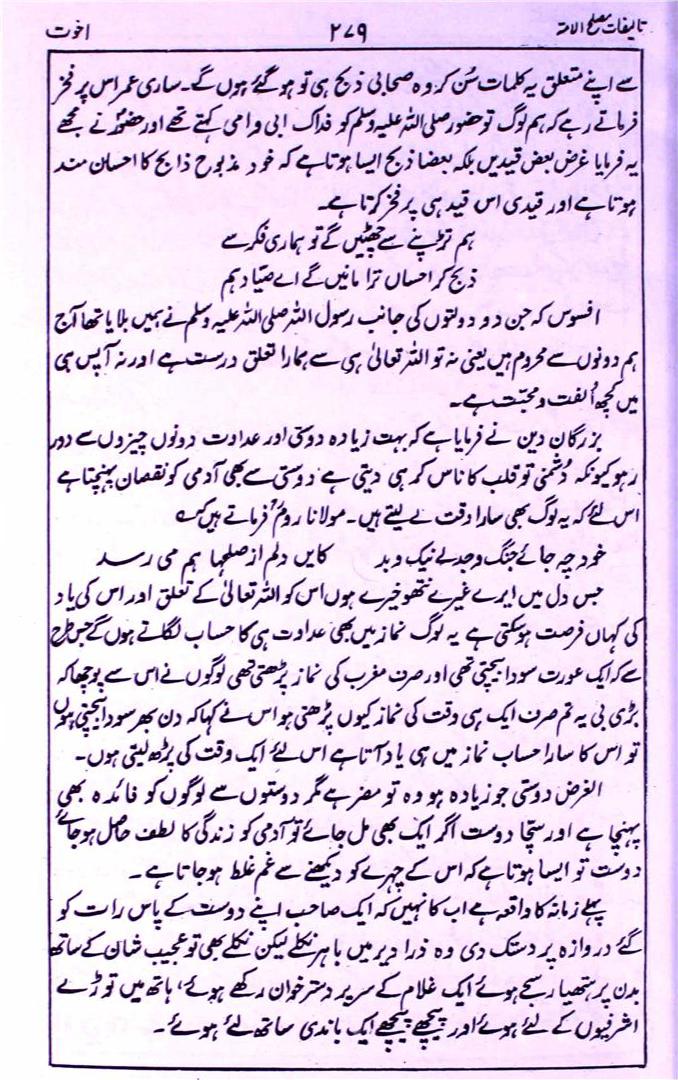 تالیفات مصلح الامۃ ۲۷۹ اخوت
سے اپنے متعلق یہ کلمات سُن کر وہ صحابی ذبح ہی تو ہو گئے ہوں گے۔ ساری عمر اس پر فخر
فرماتے رہے کہ ہم لوگ تو حضور صلی اللہ علیہ وسلم کو فداک ابی وامی کہتے تھے اور حضورؐ نے مجھے
یہ فرمایا غرض بعض قیدیں بلکہ بعضا ذبح ایسا ہوتا ہے کہ خود مذبوح ذابح کا احسان مند
ہوتا ہے اور قیدی اس قید ہی پر فخر کرتا ہے۔
ہم تڑپنے سے چھٹیں گے تو ہماری فکر سے
ذبح کر احساں ترا مانیں گے اے صیّاد ہم
افسوس کہ جن دو دولتوں کی جانب رسول اللہ صلی اللہ علیہ وسلم نے ہمیں بلایا تھا آج
ہم دونوں سے محروم ہیں یعنی نہ تو اللہ تعالیٰ ہی سے ہمارا تعلق درست ہے اور نہ آپس ہی
میں کچھ اُلفت و محبّت ہے۔
بزرگان دین نے فرمایا ہے کہ بہت زیادہ دوستی اور عداوت دونوں چیزوں سے دور
رہو کیونکہ دُشمنی تو قلب کا ناس کر ہی دیتی ہے دوستی سے بھی آدمی کو نقصان پہنچتا ہے
اس لئے کہ یہ لوگ بھی سارا وقت لے لیتے ہیں۔ مولانا رومؒ فرماتے ہیں کہ
خود چہ جائے جنگ وجدل نیک و بد کایں دلم از صلحہا ہم می رسد
جس دل میں ایرے غیرے نتھو خیرے ہوں اس کو اللہ تعالیٰ کے تعلق اور اس کی یاد
کی کہاں فرصت ہوسکتی ہے یہ لوگ نماز میں بھی عداوت ہی کا حساب لگاتے ہوں گے جس طرح
سے کہ ایک عورت سودا بیچتی تھی اور صرف مغرب کی نماز پڑھتی تھی لوگوں نے اس سے پوچھا کہ
بڑی بی یہ تم صرف ایک ہی وقت کی نماز کیوں پڑھتی ہو اس نے کہا کہ دن بھر سودا بیچتی ہوں
تو اس کا سارا حساب نماز میں ہی یاد آتا ہے اس لئے ایک وقت کی پڑھ لیتی ہوں۔
الغرض دوستی جو زیادہ ہو وہ تو مضر ہے مگر دوستوں سے لوگوں کو فائدہ بھی
پہنچا ہے اور سچّا دوست اگر ایک بھی مل جائے تو آدمی کو زندگی کا لطف حاصل ہو جائے
دوست تو ایسا ہوتا ہے کہ اس کے چہرے کو دیکھنے سے غم غلط ہو جاتا ہے۔
پہلے زمانہ کا واقعہ ہے اب کا نہیں کہ ایک صاحب اپنے دوست کے پاس رات کو
گئے دروازہ پر دستک دی وہ ذرا دیر میں باہر نکلے لیکن نکلے بھی تو عجیب شان کے ساتھ
بدن پر ہتھیار سجے ہوئے ایک غلام کے سر پر دستر خوان رکھے ہوئے، ہاتھ میں توڑے
اشرفیوں کے لئے ہوئے اور پیچھے پیچھے ایک باندی ساتھ لئے ہوئے۔